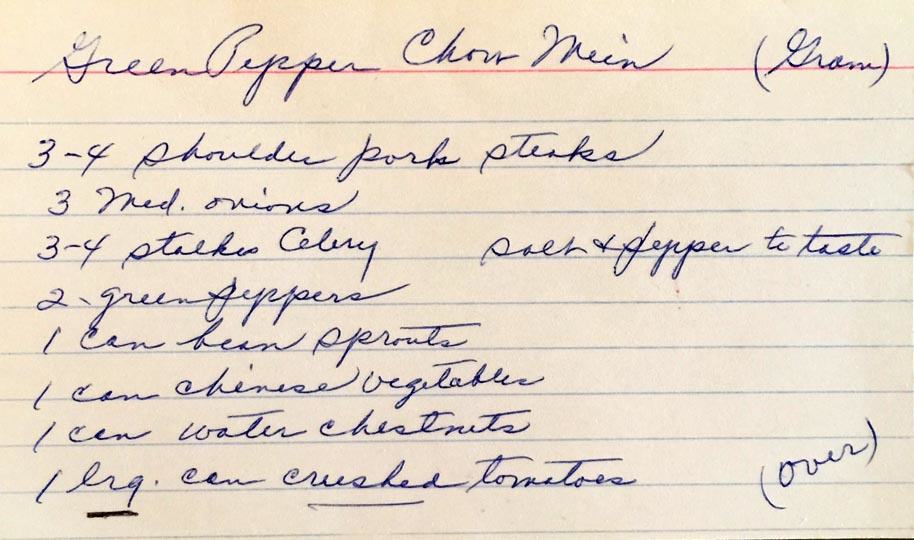 Green Pepper Chow Mein (Gram)
3-4 shoulder pork steaks
3 Med. onions
3-4 stalkes Celery salt & pepper to taste
2 - green peppers
1 can bean sprouts
1 can chinese vegetables
1 can water chestnuts
1 lrg. can crushed tomatoes
(over)